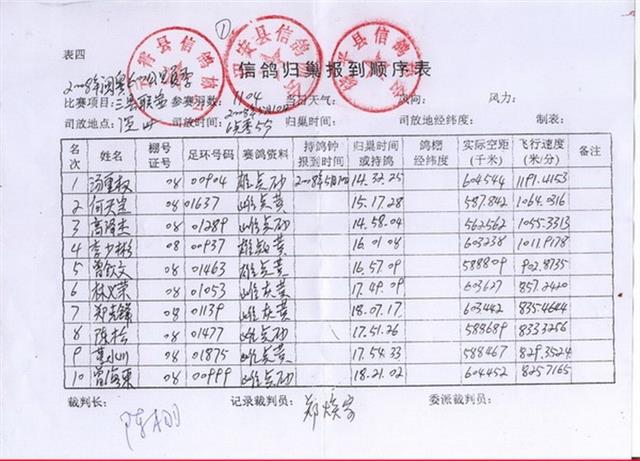 ①
表四
信鸽归巢报到顺序表
比赛项目:三县联赛 参赛羽数:1104 当日天气: 风向: 风力:
司放地点: 司放时间: 归巢时间: 司放地经纬度: 制表:
名次 姓名 棚号证号 足环号码 赛鸽资料 持鸽钟报到时间 归巢时间或持鸽 鸽棚经纬度 实际空距(千米) 飞行速度(米/分) 备注
1 汤重权 08 00904 雄点砂 14.32.25 604544 1191.4153
2 何天宝 08 01637 雌点黄 15.17.28 587.842 1064.0316
3 08 01289 雌点砂 14.58.04 562562 1055.3313
4 李少彬 08 00937 黄 16.01.08 603238 1011.9178
5 曾钦文 08 01463 雌点黄 16.57.09 588809 902.8735
6 林火荣 08 01053 雌灰黄 17.49.09 603627 857.2420
7 郑志锋 08 01139 雌灰黄 18.07.17 603442 835.4644
8 陈松 08 01477 雌点砂 17.51.26 588689 833.3256
9 小川 08 01875 雌灰黄 17.54.33 588467 829.3524
10 曾海泉 08 00999 雌点砂 18.21.02 604452 825.7165
裁判长: 记录裁判员: 郑焕 委派裁判员: